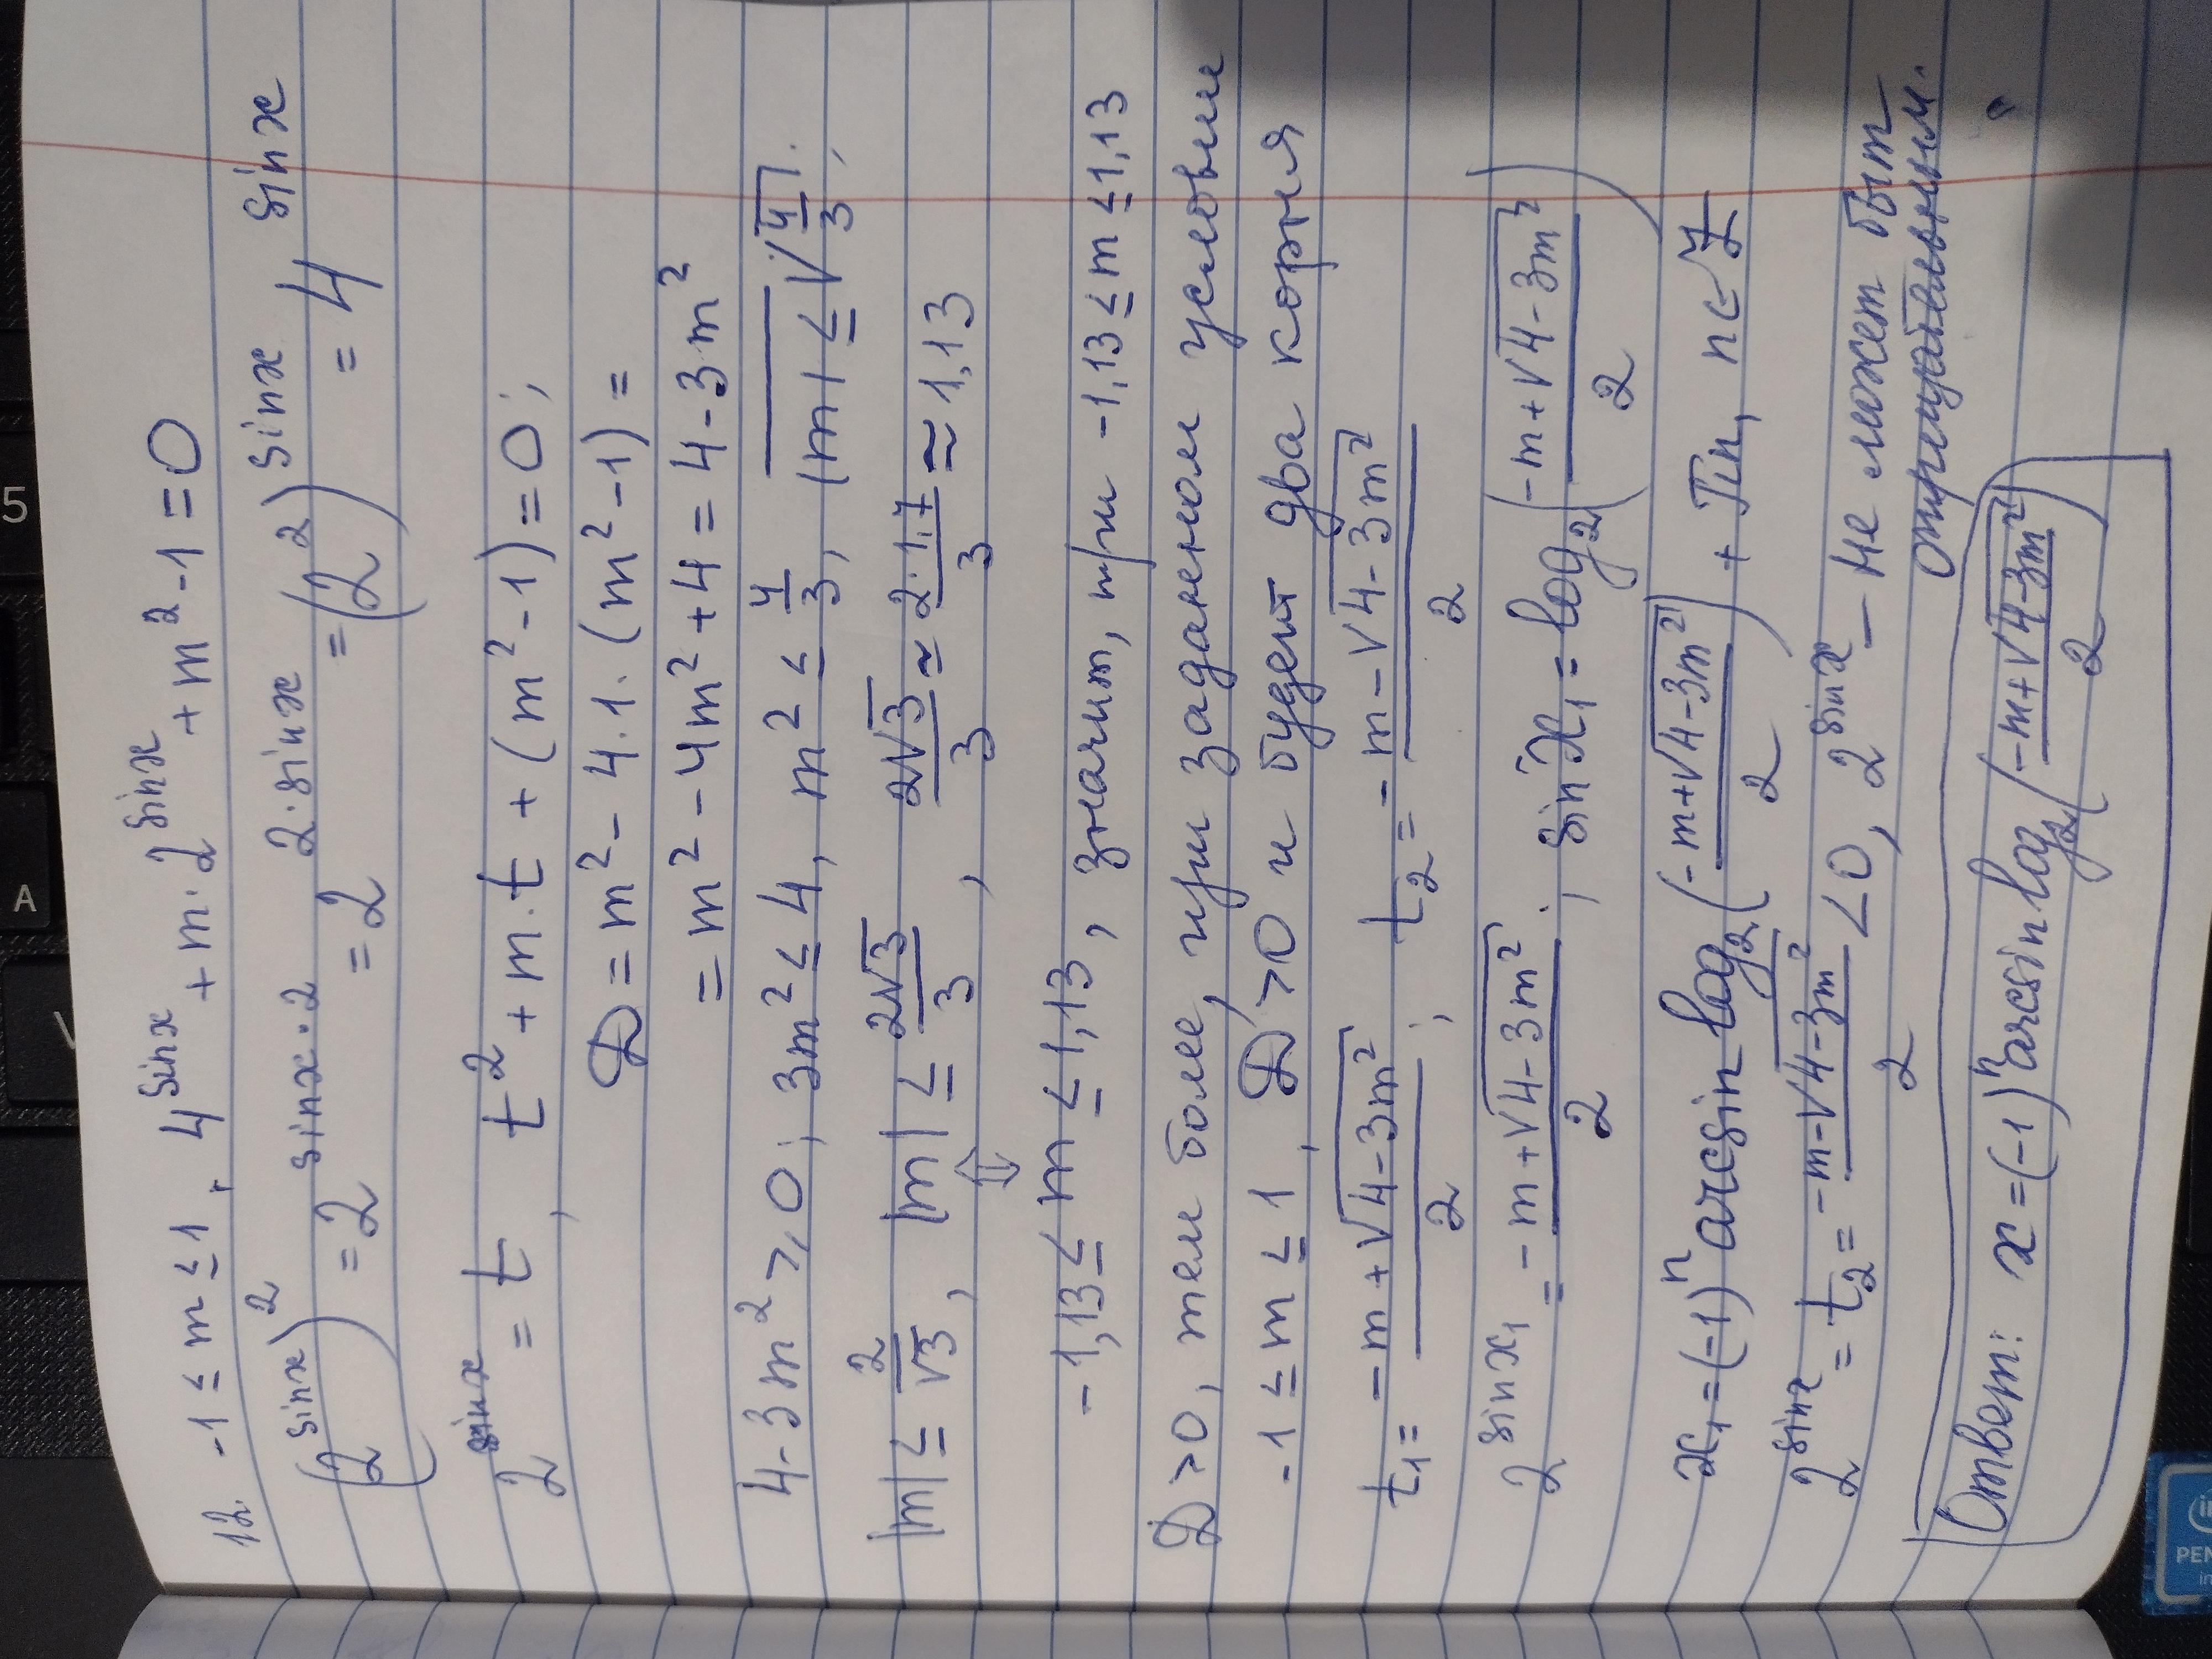 12. -1 ≤ m ≤ 1, 4^sinx + m·2^sinx + m²-1=0
(2^sinx)² = 2^sinx·2 = 2^2·sinx = (2²)^sinx = 4^sinx
2^sinx = t, t² + m·t + (m²-1)=0;
D = m² - 4·1·(m²-1) =
= m² - 4m² + 4 = 4 - 3m²
4-3m² ≥ 0; 3m² ≤ 4, m² ≤ 4/3, |m| ≤ √(4/3),
|m| ≤ 2/√3, |m| ≤ 2√3/3, 2√3/3 ≈ 2·1,7/3 ≈ 1,13
⇕
-1,13 ≤ m ≤ 1,13, значит, при -1,13 ≤ m ≤ 1,13
D>0, тем более, при заданном условии
-1 ≤ m ≤ 1, D>0 и будет два корня
t₁ = (-m+√(4-3m²))/2; t₂ = (-m-√(4-3m²))/2
2^sinx₁ = (-m+√(4-3m²))/2; sinx₁ = log₂((-m+√(4-3m²))/2)
x₁=(-1)ⁿ arcsin log₂((-m+√(4-3m²))/2) + πn, n∈Z
2^sinx = t₂ = (-m-√(4-3m²))/2 <0, 2^sinx - не может быт
отрицательным.
Ответ: x=(-1)ⁿarcsin log₂((-m+√(4-3m²))/2)
5
A
V
PEN
in